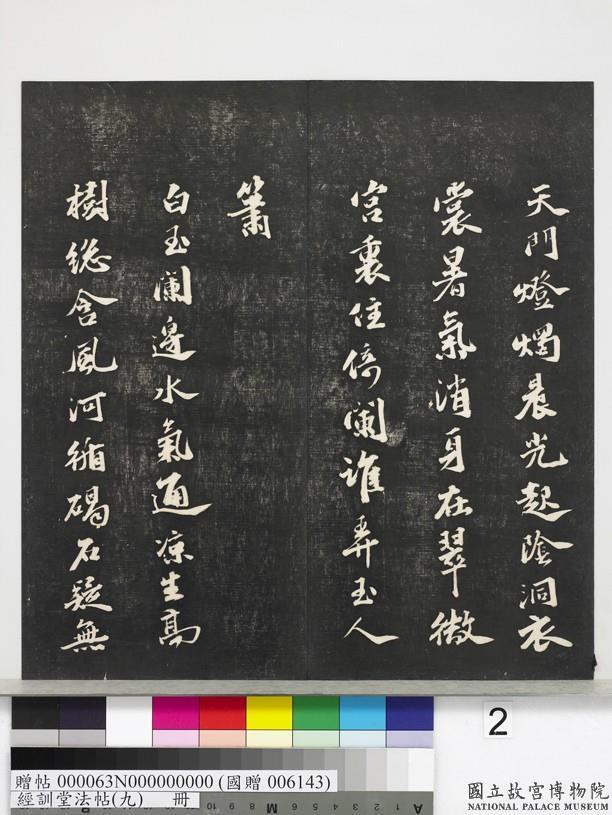 天門燈燭晨光起陰洞衣
裳暑氣消身在翠微
宮裏住倚闌誰弄玉人
簫
白玉闌邊水氣通凉生高
樹總含風河循碣石疑無
2
贈帖 000063N000000000 (國贈 006143)
經訓堂法帖(九) 冊
國立故宮博物院
NATIONAL PALACE MUSEUM